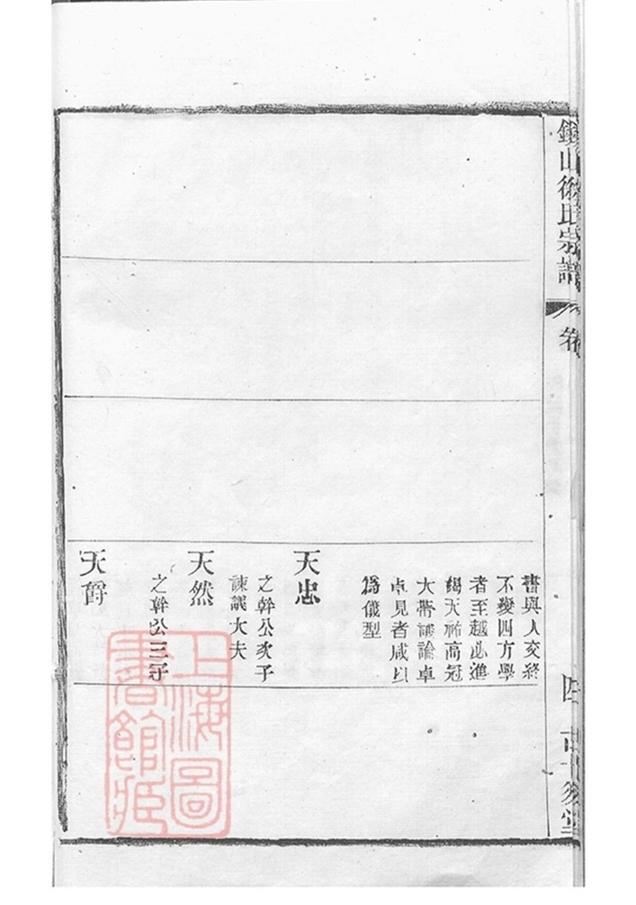 山徐氏宗譜
卷
四
書與人交終
不變四方學
者至越必進
謁天祐高冠
大帶議論卓
卓見者咸以
爲儀型
天忠
之幹公次子
諫議大夫
天然
之幹公三子
天爵
上海圖
書館藏